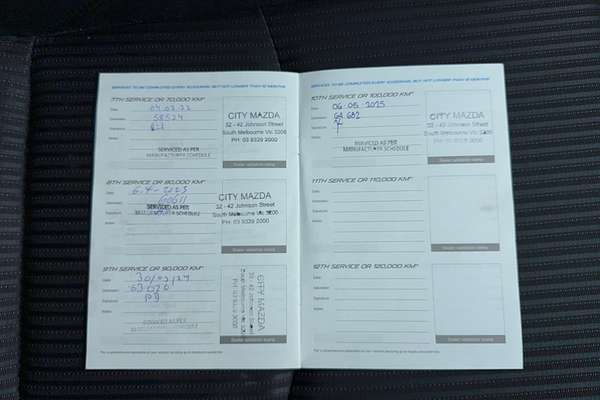 SERVICES TO BE COMPLETED EVERY 10,000KM, BUT NOT LONGER THAN 12 MONTHS
7TH SERVICE OR 70,000 KM*
Date:
58524
Signature:
Notes:
SERVICED AS PER
MANUFACTURER SCHEDULE
CITY MAZDA
32 - 42 Johnson Street
South Melbourne Vic 3205
PH: 03 8329 2000
Dealer validation stamp
8TH SERVICE OR 80,000 KM*
Date: 6-4-2023
Odometer: 60611
Signature:
SERVICED AS PER
MANUFACTURER SCHEDULE
Notes:
CITY MAZDA
32 - 42 Johnson Street
South Melbourne Vic 3205
PH: 03 8329 2000
Dealer validation stamp
9TH SERVICE OR 90,000 KM*
Date: 30/05/24
Odometer: 63020
Signature:
Notes:
SERVICED AS PER
CITY MAZDA
32 - 42 Johnson Street
South Melbourne Vic 3205
PH: 03 8329 2000
Dealer validation stamp
SERVICES TO BE COMPLETED EVERY 10,000KM, BUT NOT LONGER THAN 12 MONTHS
10TH SERVICE OR 100,000 KM*
Date: 06.05.2025
Odometer:
Signature:
Notes:
SERVICED AS PER
MANUFACTURER SCHEDULE
CITY MAZDA
32 - 42 Johnson Street
South Melbourne Vic 3205
PH: 03 8329 2000
Dealer validation stamp
11TH SERVICE OR 110,000 KM*
Date:
Odometer:
Signature:
Notes:
Dealer validation stamp
12TH SERVICE OR 120,000 KM*
Date:
Odometer:
Signature:
Notes:
Dealer validation stamp